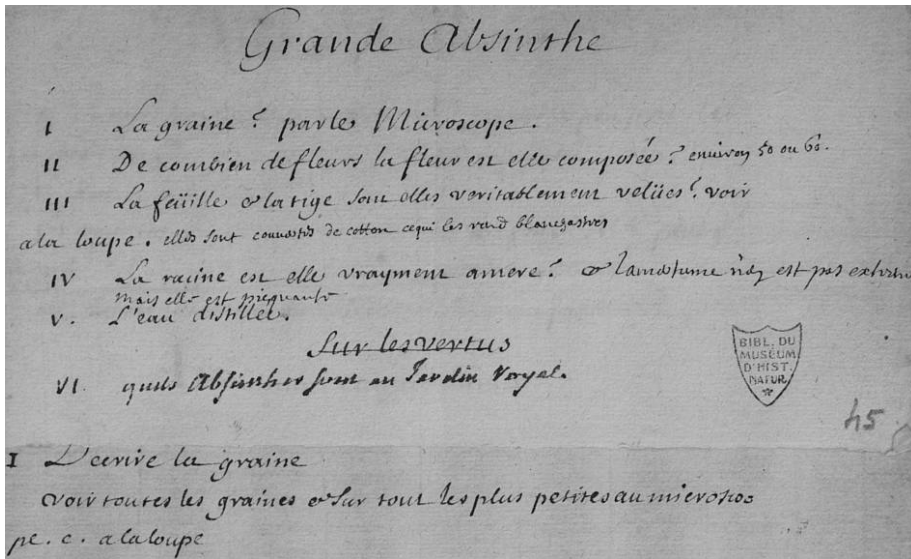 Grande Absinthe
I La graine ? par le Microscope .
II De combien de fleurs la fleur est elle composée ? environ 50 ou 60 .
III La feüille & la tige sont elles veritablement velües ? voir
a la loupe . elles sont couvertes de cotton ce qui les rend blancheastres
IV La racine est elle vrayment amere ? & l'amertume n'en est pas extreme
mais elle est piequante
V. L'eau distillée .
Sur les vertus
VI. quels Absinthes sont au Jardin Royal .
BIBL. DU
MUSÉUM
D'HIST.
NATUR.
45
I Decrire la graine
voir toutes les graines & sur tout les plus petites au microsco
pe . c . a la loupe